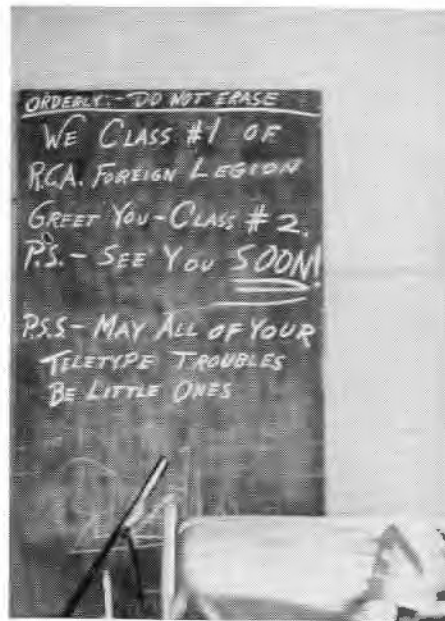 ORDERLY:- DO NOT ERASE
WE CLASS #1 OF
R.C.A. FOREIGN LEGION
GREET YOU-CLASS #2.
P.S.- SEE YOU SOON!
P.S.S- MAY ALL OF YOUR
TELETYPE TROUBLES
BE LITTLE ONES